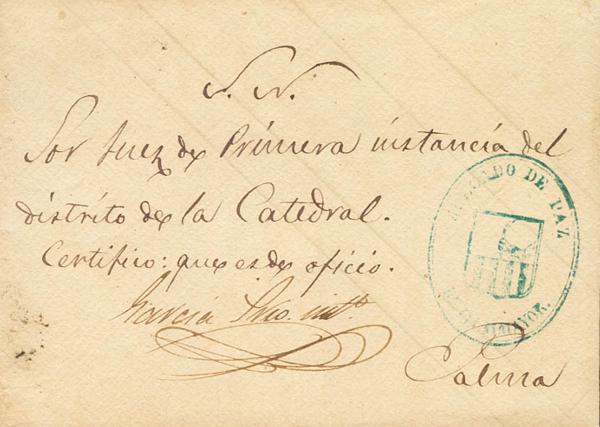 S. N.
Sor Juez de Primera instancia del
distrito de la Catedral.
Certifico: que es de oficio.
García Srio. intº.
Palma
JUZGADO DE PAZ